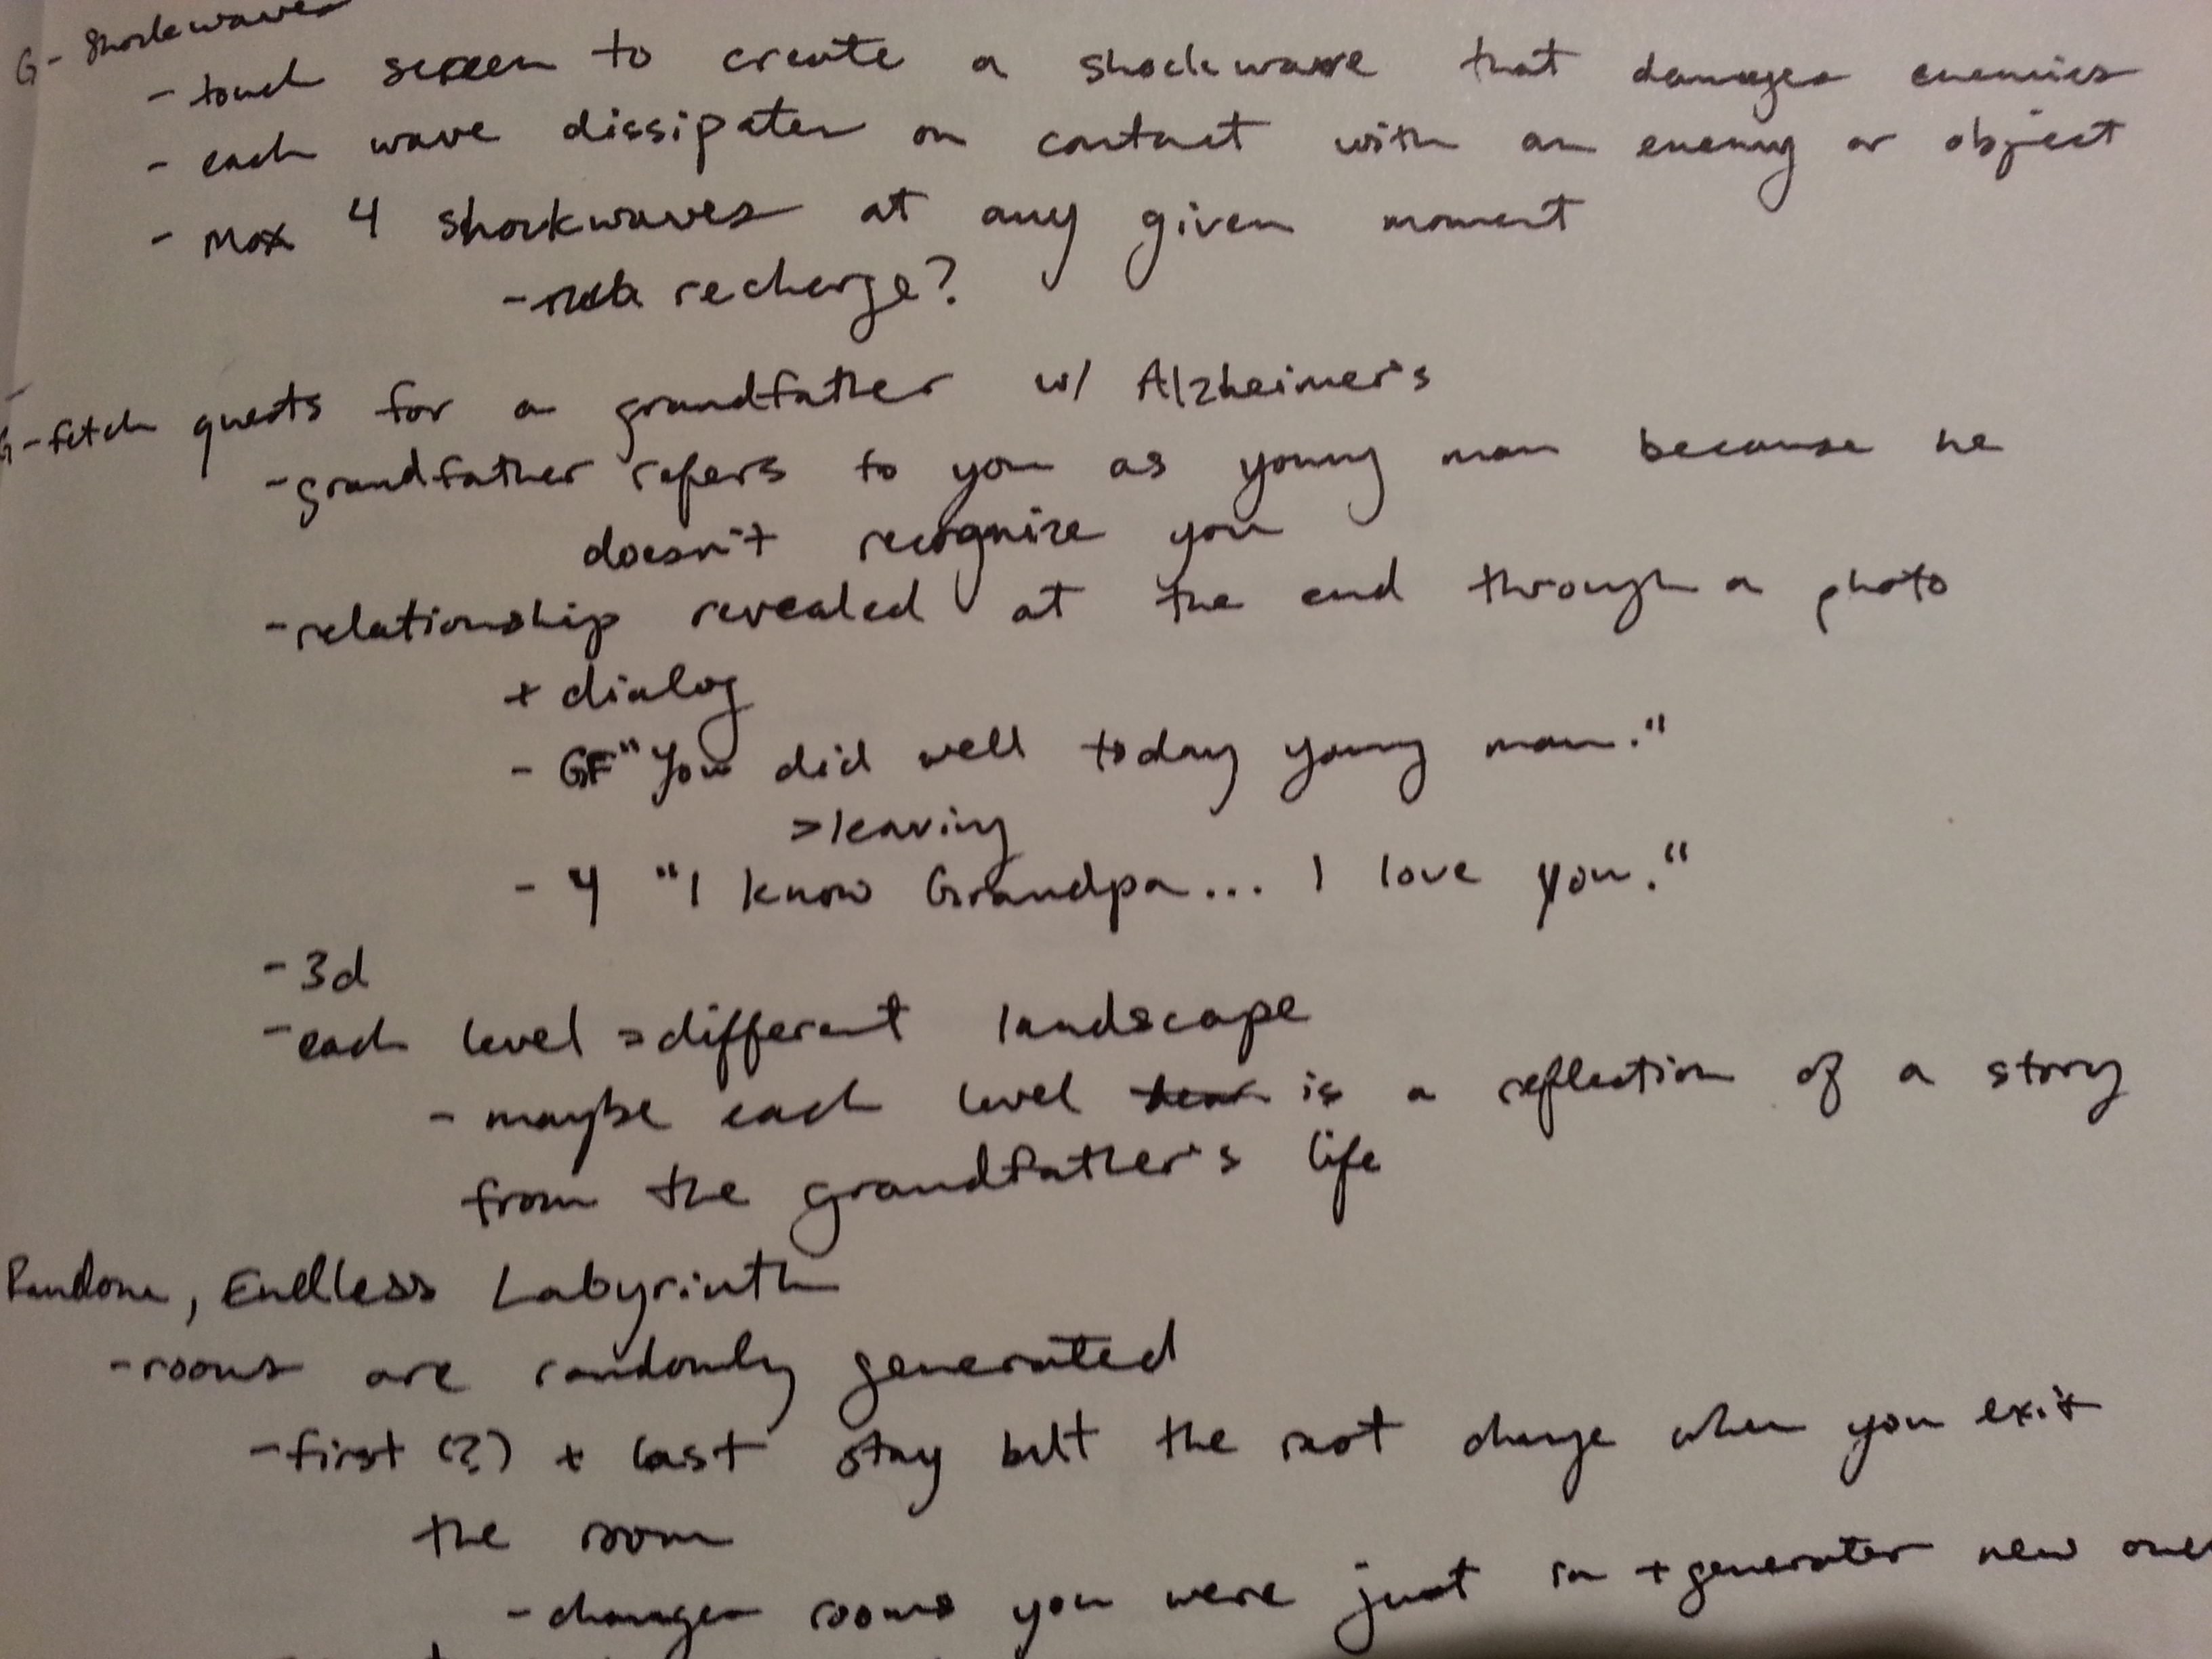 G- Shockwaves
- touch screen to create a shockwave that damages enemies
- each wave dissipates on contact with an enemy or object
- Max 4 shockwaves at any given moment
- recharge?
G-fetch quests for a grandfather w/ Alzheimer's
- grandfather refers to you as young man because he
doesn't recognize you
- relationship revealed at the end through a photo
+ dialog
- GF "You did well today young man."
>leaving
- Y "I know Grandpa... I love you."
- 3d
- each level = different landscape
- maybe each level is a reflection of a story
from the grandfather's life
Random, Endless Labyrinth
- rooms are randomly generated
- first (?) + last stay but the rest change when you exit
the room
- changes rooms you were just in + generates new ones